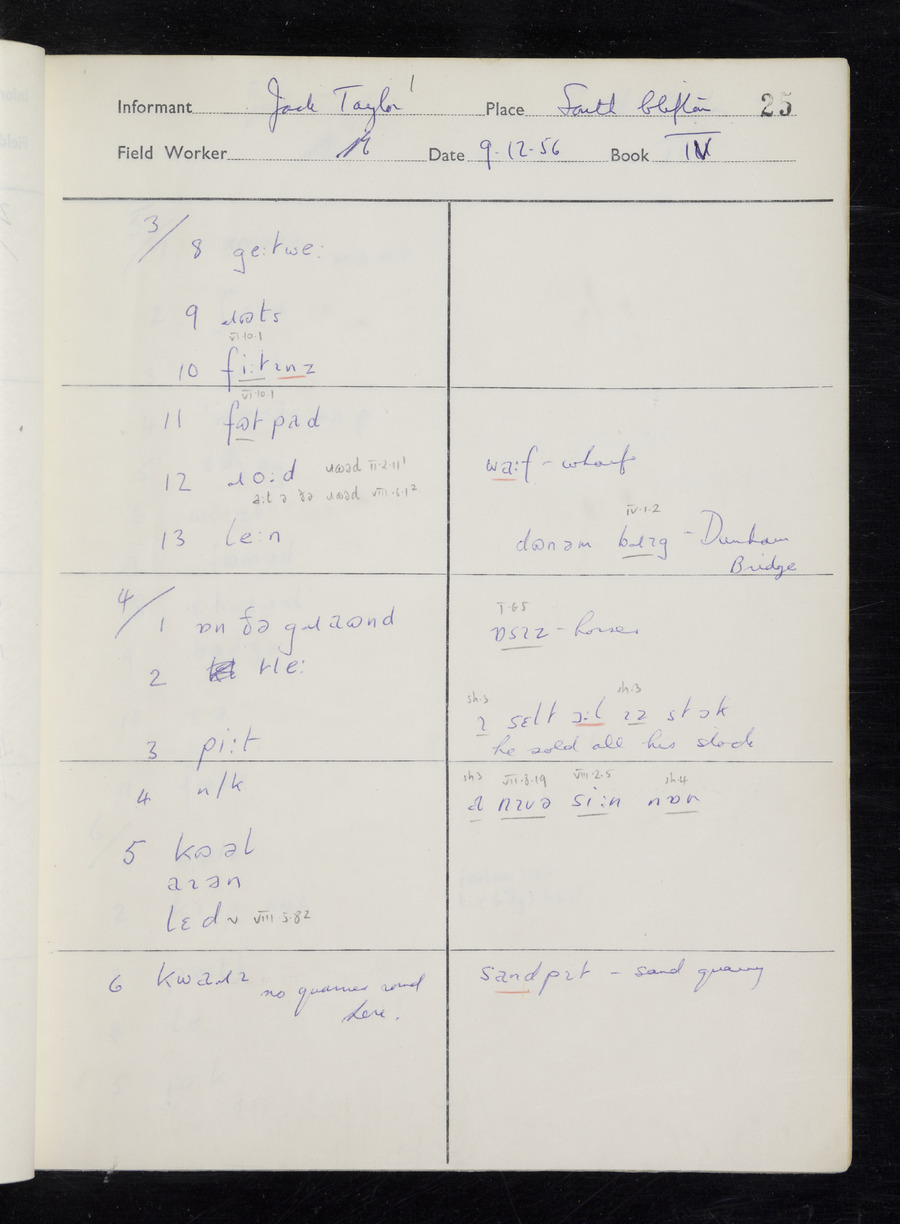 Informant Jack Taylor¹ Place South Clifton 25
Field Worker Date 9.12.56 Book IV
3/
8 geːtweː
9 ɹɷts
VI.10.1
10 fiːtɪnz
VI.10.1
11 fɷtpad
12 ɹoːd ɹɷəd II.2.11¹
aːt ə ðə ɹɷəd VIII.6.1²
waːf - wharf
13 leːn
IV.1.2
dɷnəm bɹɪg - Dunham
Bridge
4/
1 ɒn ðə gɹaɷnd
I.6.5
ɒsɪz - horses
2 tleː
3 piːt
sh.3 sh.3
ɪ sɛlt ɔːl ɪz stɔk
he sold all his stock
4 n/k
sh3 VII.3.19 VIII.2.5 sh.4
a nɪvə siːn nɒn
5 kɷəl
aɪən
lɛd ~ VIII.5.8²
6 kwaɹɪ no quarries round
here.
sandpɪt - sand quarry